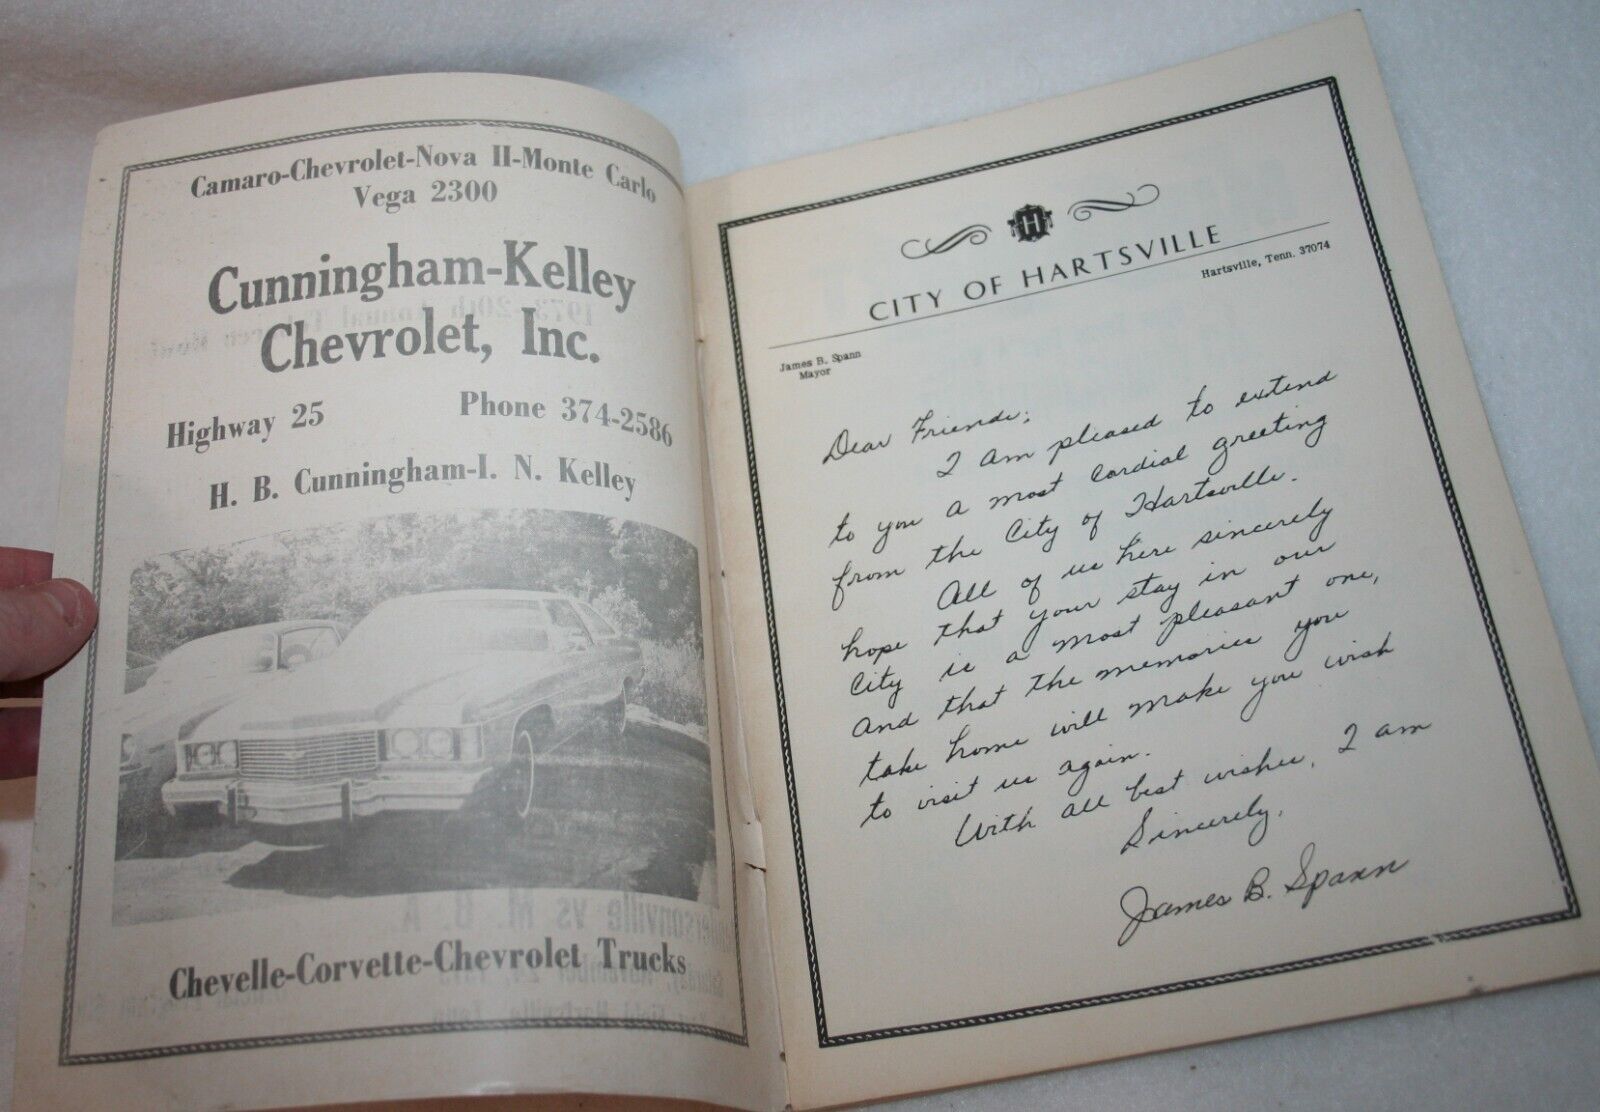 Camaro-Chevrolet-Nova II-Monte Carlo
Vega 2300
Cunningham-Kelley
Chevrolet, Inc.
Highway 25 Phone 374-2586
H. B. Cunningham-I. N. Kelley
Chevelle-Corvette-Chevrolet Trucks
H
CITY OF HARTSVILLE
Hartsville, Tenn. 37074
James B. Spann
Mayor
Dear Friends;
I am pleased to extend
to you a most cordial greeting
from the City of Hartsville.
All of us here sincerely
hope that your stay in our
City is a most pleasant one,
and that the memories you
take home will make you wish
to visit us again.
With all best wishes, I am
Sincerely,
James B. Spann